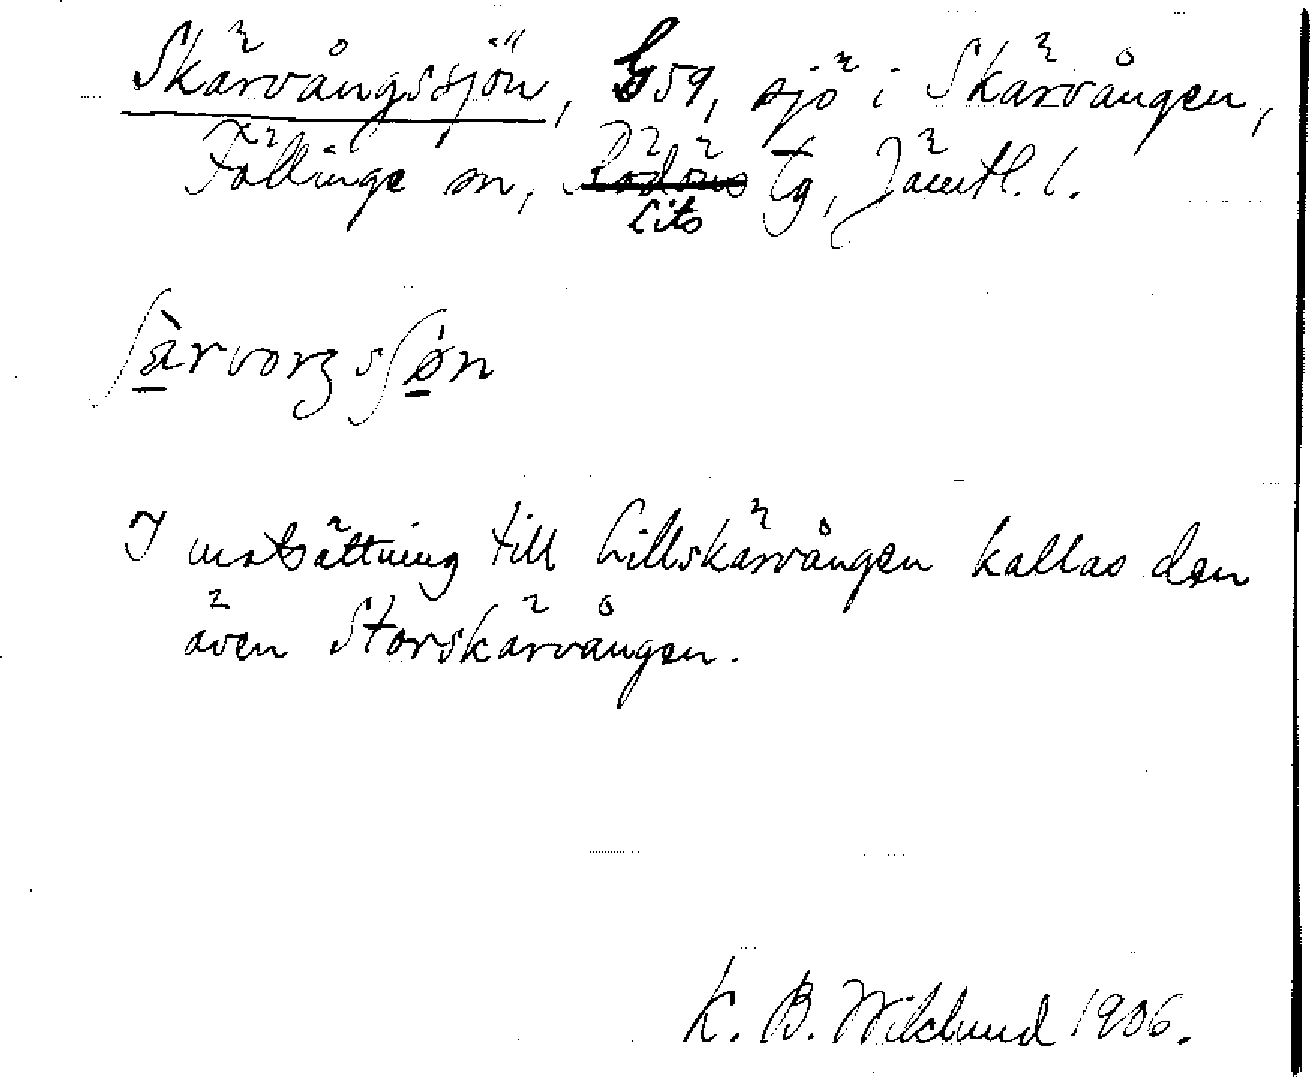 Skärvångssjön, G59, sjö i Skärvången,
Föllinge sn, Rödöns tg, Jämtl. l.
Lits
ʃä̀rvoŋsʃǿn
I motsättning till Lillskärvången kallas den
även Storskärvången.
K. B. Wiklund 1906.